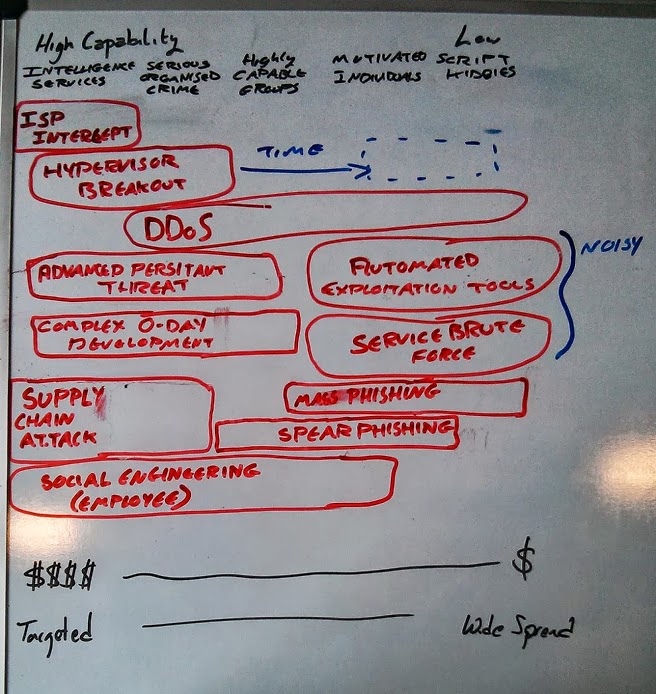 High Capability
Low
INTELLIGENCE SERIOUS HIGHLY MOTIVATED SCRIPT
SERVICES ORGANISED CAPABLE INDIVIDUALS KIDDIES
CRIME GROUPS
ISP
INTERCEPT
HYPERVISOR
BREAKOUT
TIME
DDoS
NOISY
ADVANCED PERSITANT
THREAT
AUTOMATED
EXPLOITATION TOOLS
COMPLEX 0-DAY
DEVELOPMENT
SERVICE BRUTE
FORCE
SUPPLY
CHAIN
ATTACK
MASS PHISHING
SPEAR PHISHING
SOCIAL ENGINEERING
(EMPLOYEE)
$$$$ $
Targeted Wide Spread